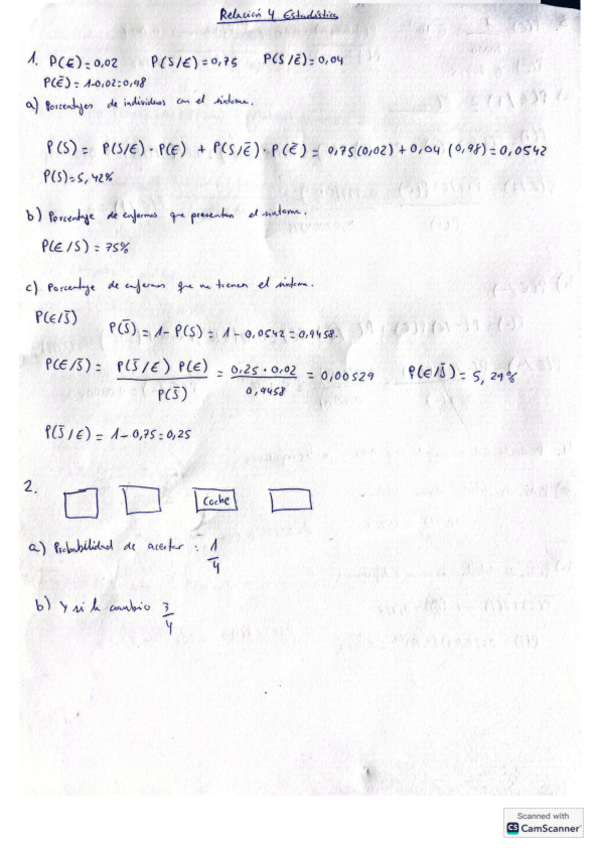 Relación 4 Estadística
1. P(E)=0,02 P(S/E)=0,75 P(S/Ē)=0,04
P(Ē)=1-0,02=0,98
a) Porcentajes de individuos con el síntoma.
P(S)= P(S/E)·P(E) + P(S/Ē)·P(Ē)= 0,75(0,02)+0,04 (0,98)=0,0542
P(S)=5,42%
b) Porcentaje de enfermos que presentan el síntoma.
P(E/S)=75%
c) Porcentaje de enfermos que no tienen el síntoma.
P(E/S̄)
P(S̄)=1-P(S)=1-0,0542=0,9458
P(E/S̄)= P(S̄/E) P(E) / P(S̄) = 0,25·0,02 / 0,9458 = 0,00529 P(E/S̄)=5,29%
P(S̄/E)=1-0,75=0,25
2.
Coche
a) Probabilidad de acertar: 1/4
b) Y si lo cambio 3/4
Scanned with
CS CamScanner